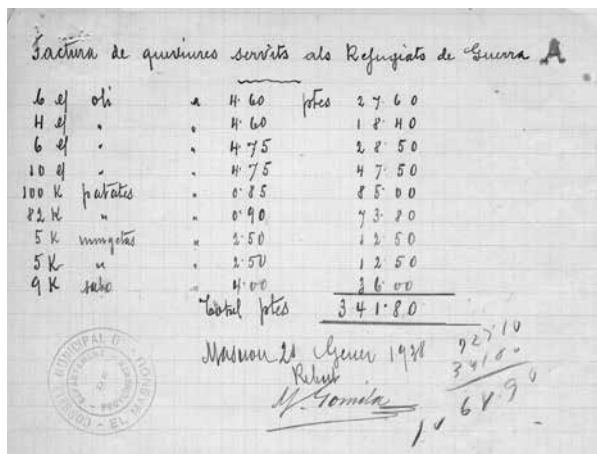 Factura de queviures servits als Refugiats de Guerra A
6 ej oli a 4·60 ptes 27 60
4 ej " " 4·60 18·40
6 ej " " 4·75 28·50
10 ej " " 4·75 47·50
100 K patates " 0·85 85·00
82 K " " 0·90 73·80
5 K mongetas " 2·50 12 50
5 K " " 2·50 12 50
9 K sabo " 4·00 36·00
Total ptes 341·80
Masnou 21 Gener 1938
Rebut
M. Gomila
MUNICIPAL D
EL MASNOU